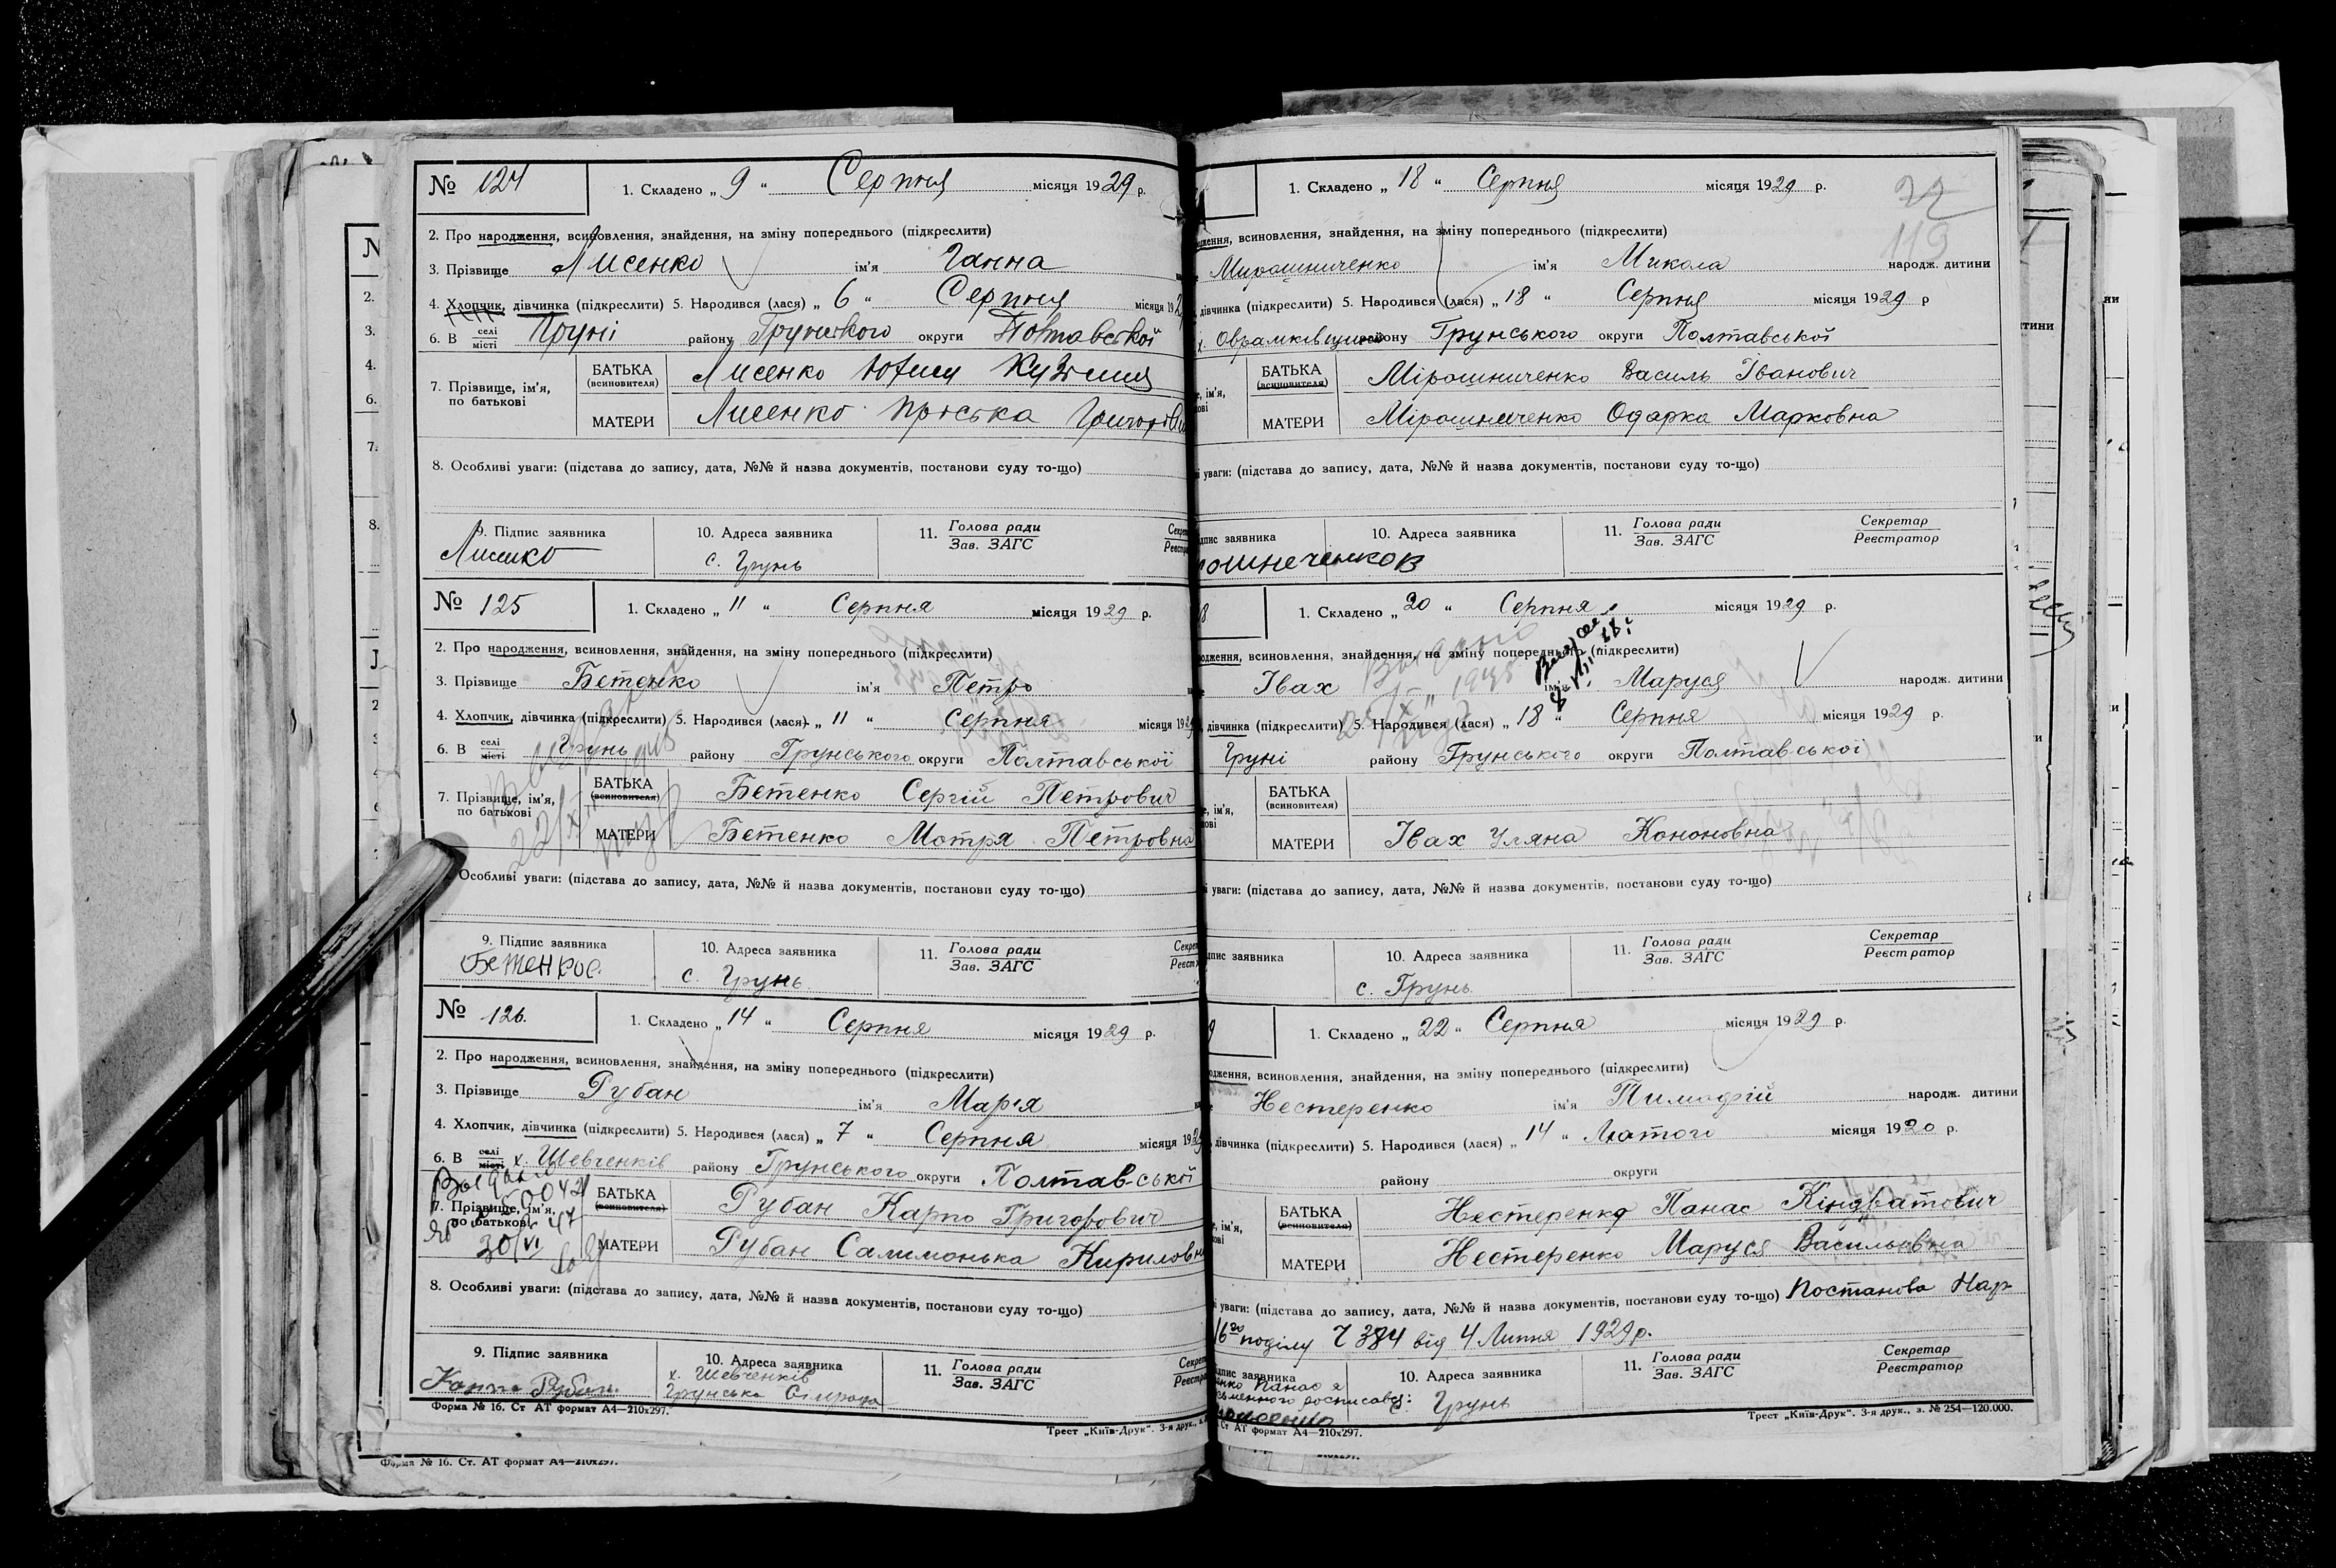 № 124
1. Складено „ 9 “ Серпня місяця 1929 р.
2. Про народження, всиновлення, знайдення, на зміну попереднього (підкреслити)
3. Прізвище Лисенко ім'я Ганна
4. Хлопчик, дівчинка (підкреслити) 5. Народився (лася) „ 6 “ Серпня місяця 192
6. В селі місті Груні району Грунського округи Полтавської
7. Прізвище, ім'я, по батькові
БАТЬКА (всиновителя) Лисенко
МАТЕРИ Лисенко Пріська
8. Особливі уваги: (підстава до запису, дата, №№ й назва документів, постанови суду то-що)
9. Підпис заявника 10. Адреса заявника 11. Голова ради Зав. ЗАГС
Лисенко с. Грунь
№ 125
1. Складено „ 11 “ Серпня місяця 1929 р.
2. Про народження, всиновлення, знайдення, на зміну попереднього (підкреслити)
3. Прізвище Бетенко ім'я Петро
4. Хлопчик, дівчинка (підкреслити) 5. Народився (лася) „ 11 “ Серпня місяця 192
6. В селі місті Грунь району Грунського округи Полтавської
7. Прізвище, ім'я, по батькові
БАТЬКА (всиновителя) Бетенко Сергій Петрович
МАТЕРИ Бетенко Мотря Петровна
Особливі уваги: (підстава до запису, дата, №№ й назва документів, постанови суду то-що)
9. Підпис заявника 10. Адреса заявника 11. Голова ради Зав. ЗАГС
с. Грунь
№ 126.
1. Складено „ 14 “ Серпня місяця 1929 р.
2. Про народження, всиновлення, знайдення, на зміну попереднього (підкреслити)
3. Прізвище Рубан ім'я Мар'я
4. Хлопчик, дівчинка (підкреслити) 5. Народився (лася) „ 7 “ Серпня місяця 192
6. В селі місті х. Шевченків району Грунського округи Полтавської
7. Прізвище, ім'я, по батькові
БАТЬКА (всиновителя) Рубан Карпо Григорович
МАТЕРИ Рубан Салимонька Кириловн
8. Особливі уваги: (підстава до запису, дата, №№ й назва документів, постанови суду то-що)
9. Підпис заявника 10. Адреса заявника 11. Голова ради Зав. ЗАГС
Карпо Рубан х. Шевченків
Грунська Сільрада
Форма № 16. Ст АТ формат А4—210х297.
Трест „Київ-Друк“. 3-я друк.,
Форма № 16. Ст. АТ формат А4—210х297.
1. Складено „ 18 “ Серпня місяця 1929 р.
22
119
всиновлення, знайдення, на зміну попереднього (підкреслити)
Мирошниченко ім'я Микола народж. дитини
дівчинка (підкреслити) 5. Народився (лася) „ 18 “ Серпня місяця 1929 р
х. Оврамківщина району Грунського округи Полтавської
БАТЬКА (всиновителя) Мірошниченко Василь Іванович
МАТЕРИ Мірошниченко Одарка Марковна
уваги: (підстава до запису, дата, №№ й назва документів, постанови суду то-що)
заявника 10. Адреса заявника 11. Голова ради Зав. ЗАГС Секретар Реєстратор
1. Складено „ 20 “ Серпня місяця 1929 р.
всиновлення, знайдення, на зміну попереднього (підкреслити)
Івах ім'я Маруся народж. дитини
дівчинка (підкреслити) 5. Народився (лася) „ 18 “ Серпня місяця 1929 р.
Груні району Грунського округи Полтавської
БАТЬКА (всиновителя)
МАТЕРИ Івах Уляна Кононовна
уваги: (підстава до запису, дата, №№ й назва документів, постанови суду то-що)
заявника 10. Адреса заявника 11. Голова ради Зав. ЗАГС Секретар Реєстратор
с. Грунь
1. Складено „ 22 “ Серпня місяця 1929 р.
всиновлення, знайдення, на зміну попереднього (підкреслити)
Нестеренко ім'я Тимофій народж. дитини
дівчинка (підкреслити) 5. Народився (лася) „ 14 “ Лютого місяця 1920 р.
району округи
БАТЬКА (всиновителя) Нестеренко Панас Кіндратович
МАТЕРИ Нестеренко Маруся Васильовна
уваги: (підстава до запису, дата, №№ й назва документів, постанови суду то-що) Постанова Нар
поділу 384 від 4 Липня 1929 р.
заявника 10. Адреса заявника 11. Голова ради Зав. ЗАГС Секретар Реєстратор
Панас
Грунь
Ст АТ формат А4—210х297.
Трест „Київ-Друк“. 3-я друк., з. № 254—120.000.